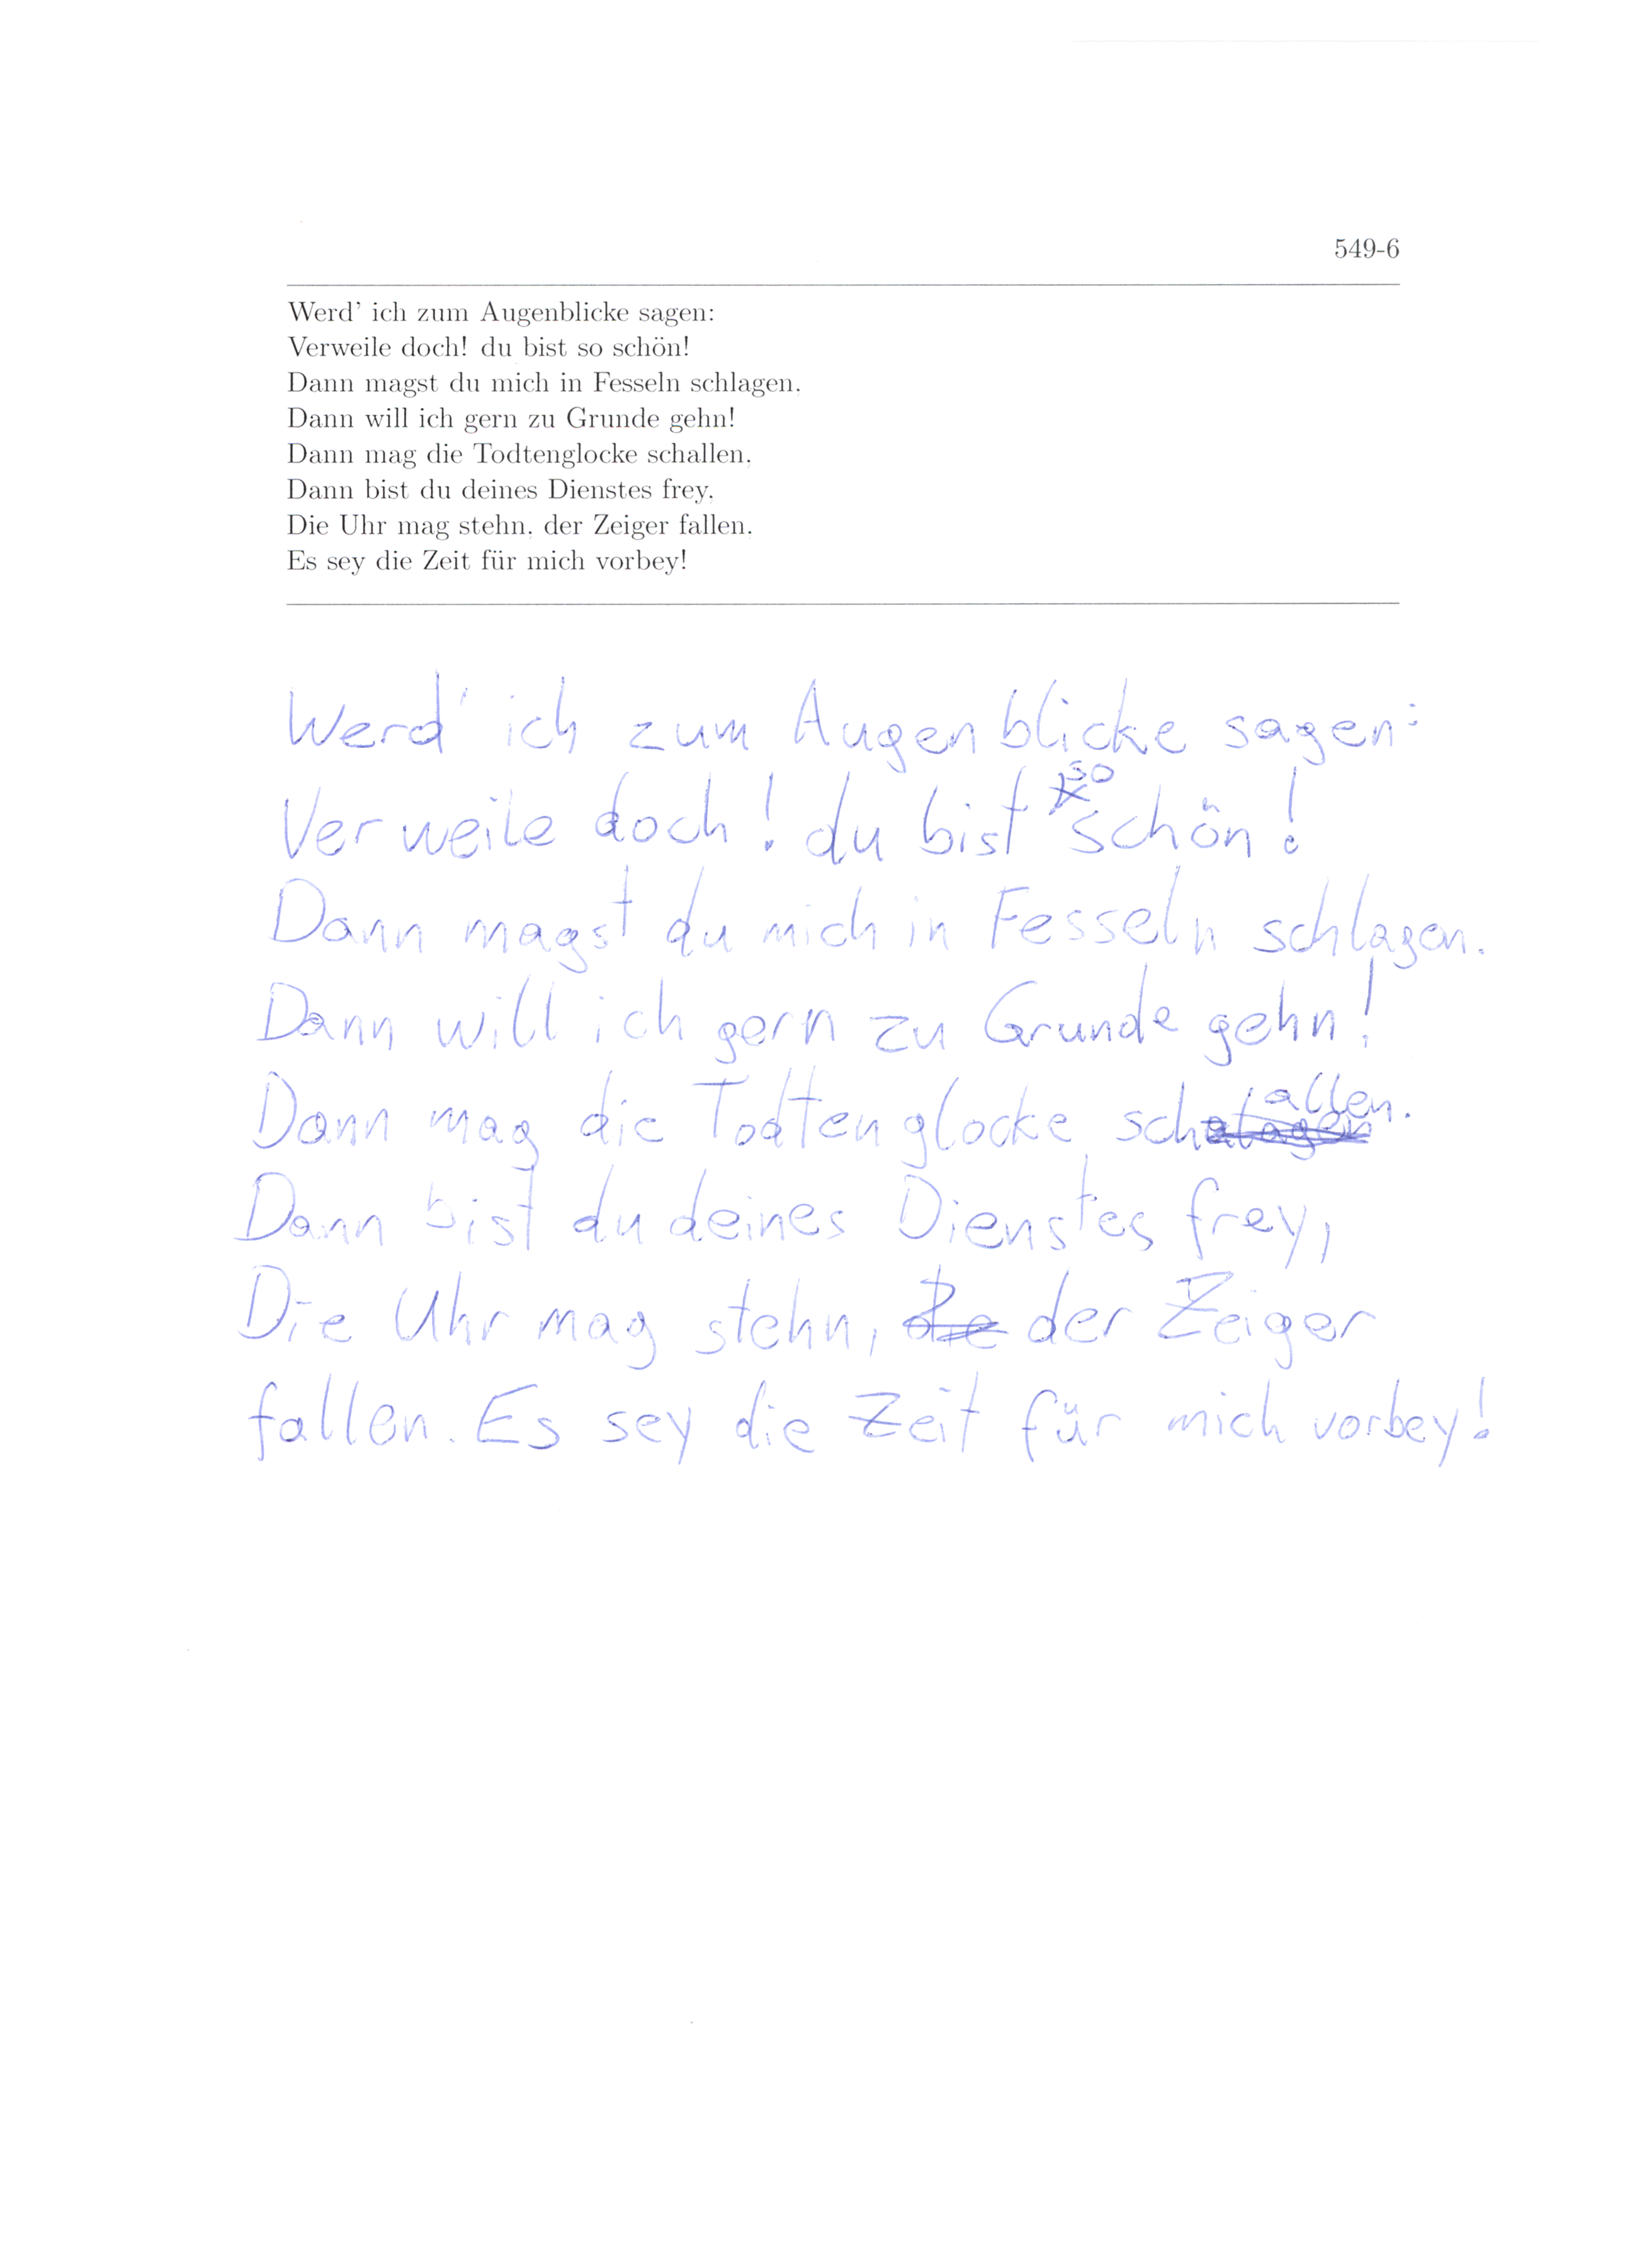 549-6
Werd' ich zum Augenblicke sagen:
Verweile doch! du bist so schön!
Dann magst du mich in Fesseln schlagen.
Dann will ich gern zu Grunde gehn!
Dann mag die Todtenglocke schallen.
Dann bist du deines Dienstes frey.
Die Uhr mag stehn. der Zeiger fallen.
Es sey die Zeit für mich vorbey!
Werd' ich zum Augenblicke sagen:
Verweile doch! du bist so schön!
Dann magst du mich in Fesseln schlagen.
Dann will ich gern zu Grunde gehn!
Dann mag die Todtenglocke schallen.
Dann bist du deines Dienstes frey,
Die Uhr mag stehn, der Zeiger
fallen. Es sey die Zeit für mich vorbey!